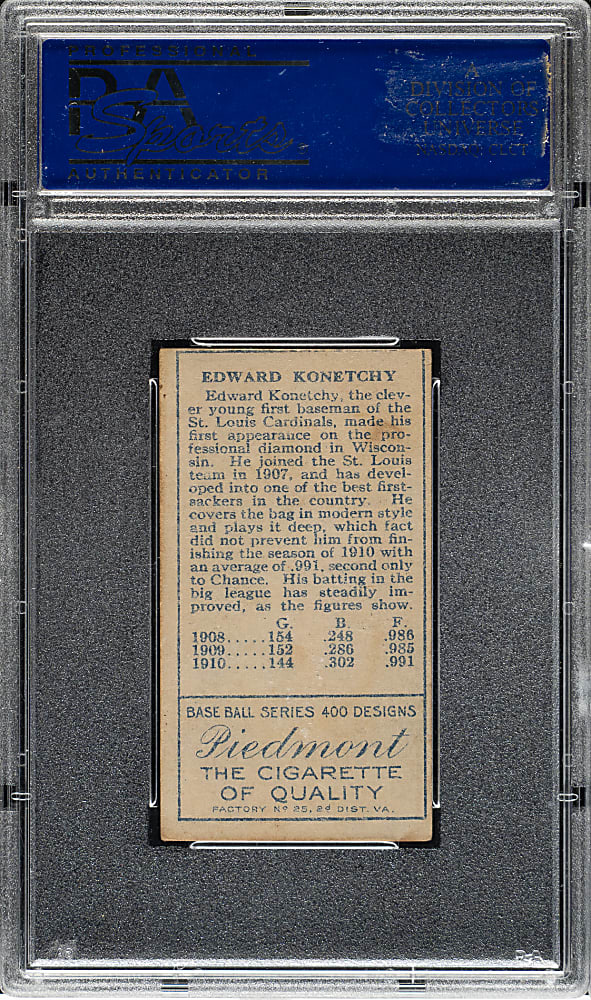 PROFESSIONAL
PSA
Sports
AUTHENTICATOR
A
DIVISION OF
COLLECTORS
UNIVERSE
NASDAQ: CLCT
EDWARD KONETCHY
Edward Konetchy, the clev-
er young first baseman of the
St. Louis Cardinals, made his
first appearance on the pro-
fessional diamond in Wiscon-
sin. He joined the St. Louis
team in 1907, and has devel-
oped into one of the best first-
sackers in the country. He
covers the bag in modern style
and plays it deep, which fact
did not prevent him from fin-
ishing the season of 1910 with
an average of .991, second only
to Chance. His batting in the
big league has steadily im-
proved, as the figures show.
G. B. F.
1908.....154 .248 .986
1909.....152 .286 .985
1910.....144 .302 .991
BASE BALL SERIES 400 DESIGNS
Piedmont
THE CIGARETTE
OF QUALITY
FACTORY Nº 25, 2d DIST. VA.
PSA